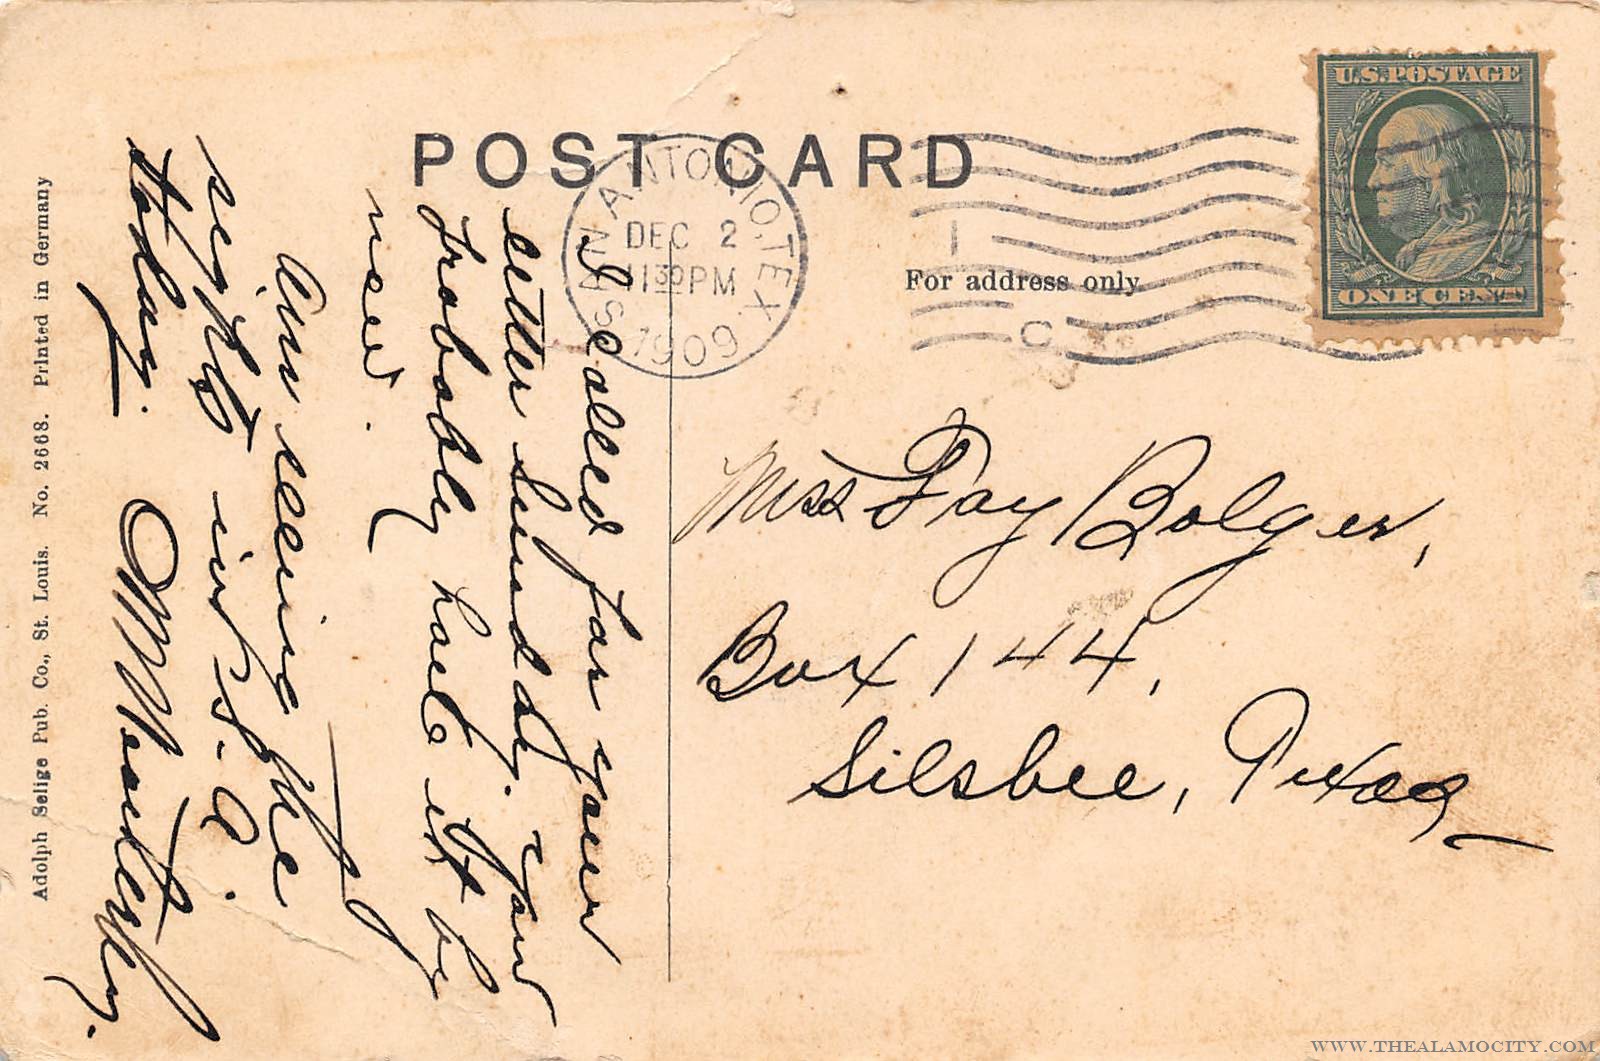 POST CARD
SAN ANTONIO, TEX.
DEC 2
11 30 PM
1909
U.S. POSTAGE
ONE CENT
1
C
For address only
Miss Fay Bolger,
Box 144,
Silsbee, Texas
I called for your
letter Sunday. You
probably have it by
now.
Am seeing the
sights in S. A.
today.
Adolph Selige Pub. Co., St. Louis. No. 2668. Printed in Germany
WWW.THEALAMOCITY.COM